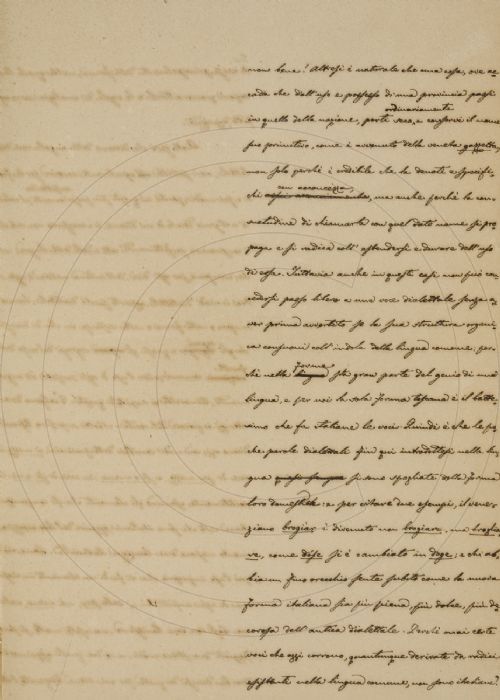 non bene! Altresì è naturale che una cosa, ove ac-
cada che dall'uso e possesso di una provincia passi
ordinariamente
in quello della nazione, porti seco, e conservi il nome
suo primitivo, come è avvenuto della veneta gazzetta,
non solo perchè è credibile che la denoti e specifi-
con acconcezza,
chi, ma anche perchè la con-
suetudine di chiamarla con quel dato nome si pro-
paga e si radica coll'estendersi e durare dell'uso
di essa. Tuttavia anche in questi casi non può con-
cedersi passo libero a una voce dialettale senza a-
ver prima avvertito se la sua struttura organi-
ca consuoni coll'indole della lingua comune; per-
forma
chè nella lingua sta gran parte del genio di una
lingua, e per noi la sola forma toscana è il batte-
simo che fa italiane le voci. Quindi è che le po-
che parole dialettali fin qui introdottesi nella lin-
gua si sono spogliate della forma
loro domestica: e per citare due esempi, il vene-
ziano brogiar è divenuto non brogiare, ma broglia-
re, come dose si è cambiato in doge; e chi ab-
bia un fino orecchio sente subito come la nuova
forma italiana sia più piena, più dolce, più de-
corosa dell'antica dialettale. Perciò assai certe
voci che oggi corrono, quantunque derivate da radici
esistenti nella lingua comune, non sono italiane